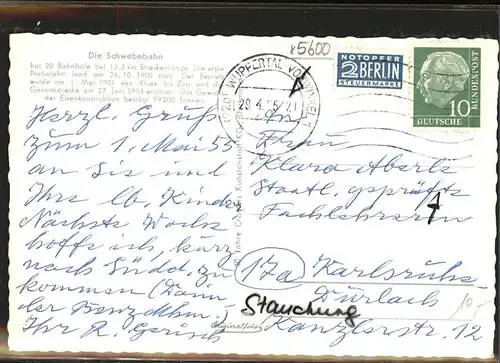 x5600
Die Schwebebahn
hat 20 Bahnhöfe bei 13,3 km Streckenlänge. Die erste
Probefahrt fand am 24. 10. 1900 statt. Der Betrieb
wurde am 1. Mai 1901 von Kluse bis Zoo und die
Gesamtstrecke am 27. Juni 1903 eröffnet. Das Gewicht
der Eisenkonstruktion beträgt 19200 Tonnen
WUPPERTAL-VOHWINKEL 1
29.4.55-21
NOTOPFER
2 BERLIN
STEUERMARKE
DEUTSCHE BUNDESPOST
10
Herzl. Gruß
zum 1. Mai 55
an Sie und
Ihre lb. Kinder
Nächste Woche
hoffe ich, kurz
nach Südd. zu
kommen
Ihr R.
An
Frau
Klara Aberle
Staatl. geprüfte
Fachlehrerin
(17a) Karlsruhe
Durlach
Kanzlerstr. 12
Stauchung
Originalfoto
10,-